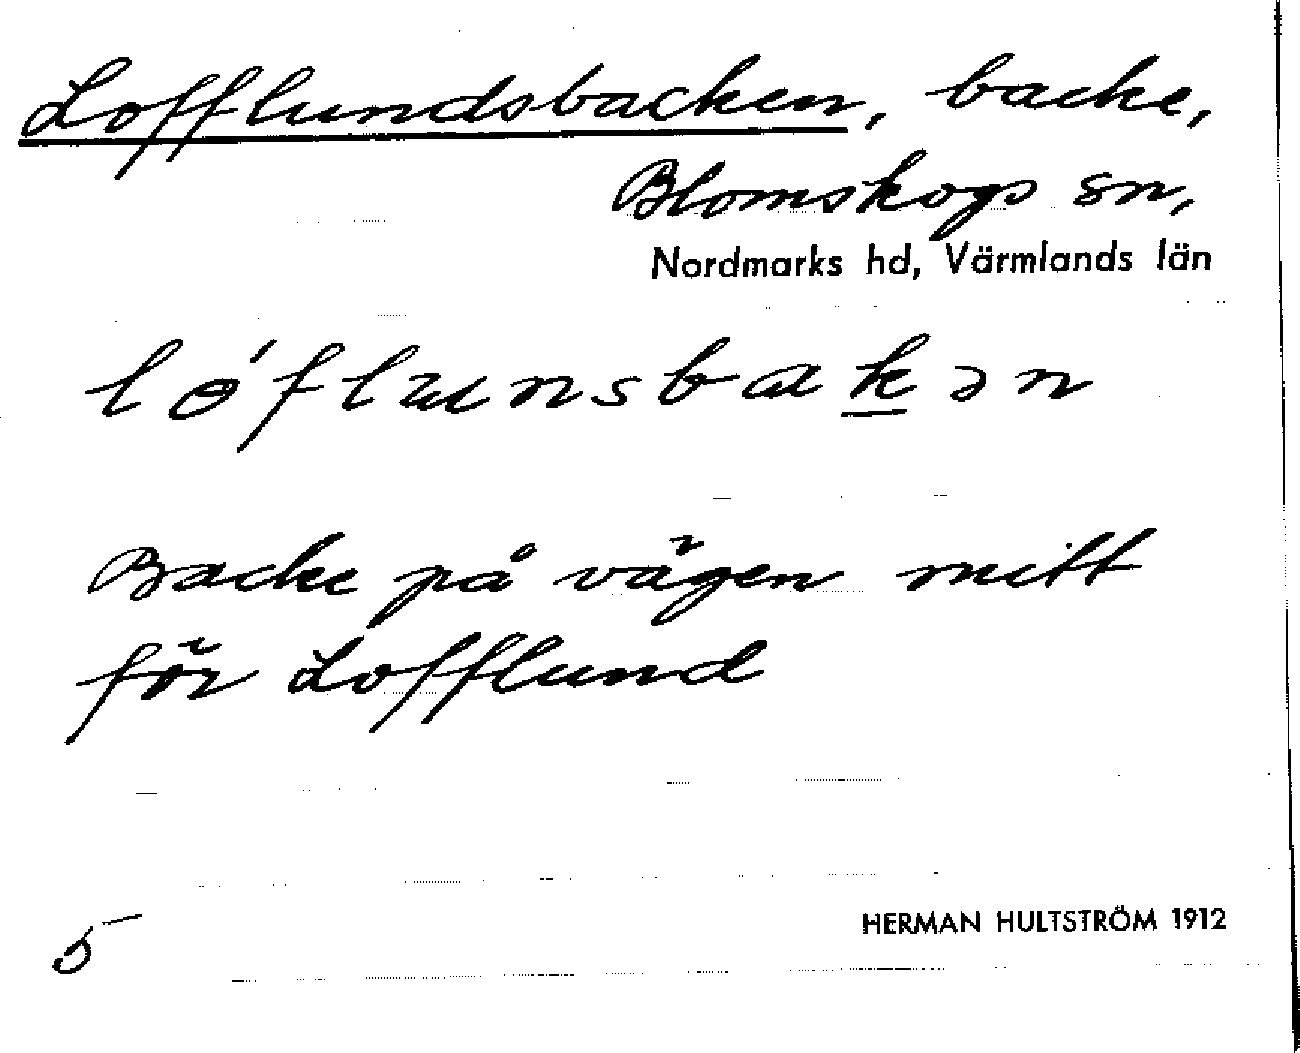 Lofflundsbacken, backe,
Blomskogs sn,
Nordmarks hd, Värmlands län
lɵ́flunsbak̲ən
Backe på vägen mitt
för Lofflund
5
HERMAN HULTSTRÖM 1912